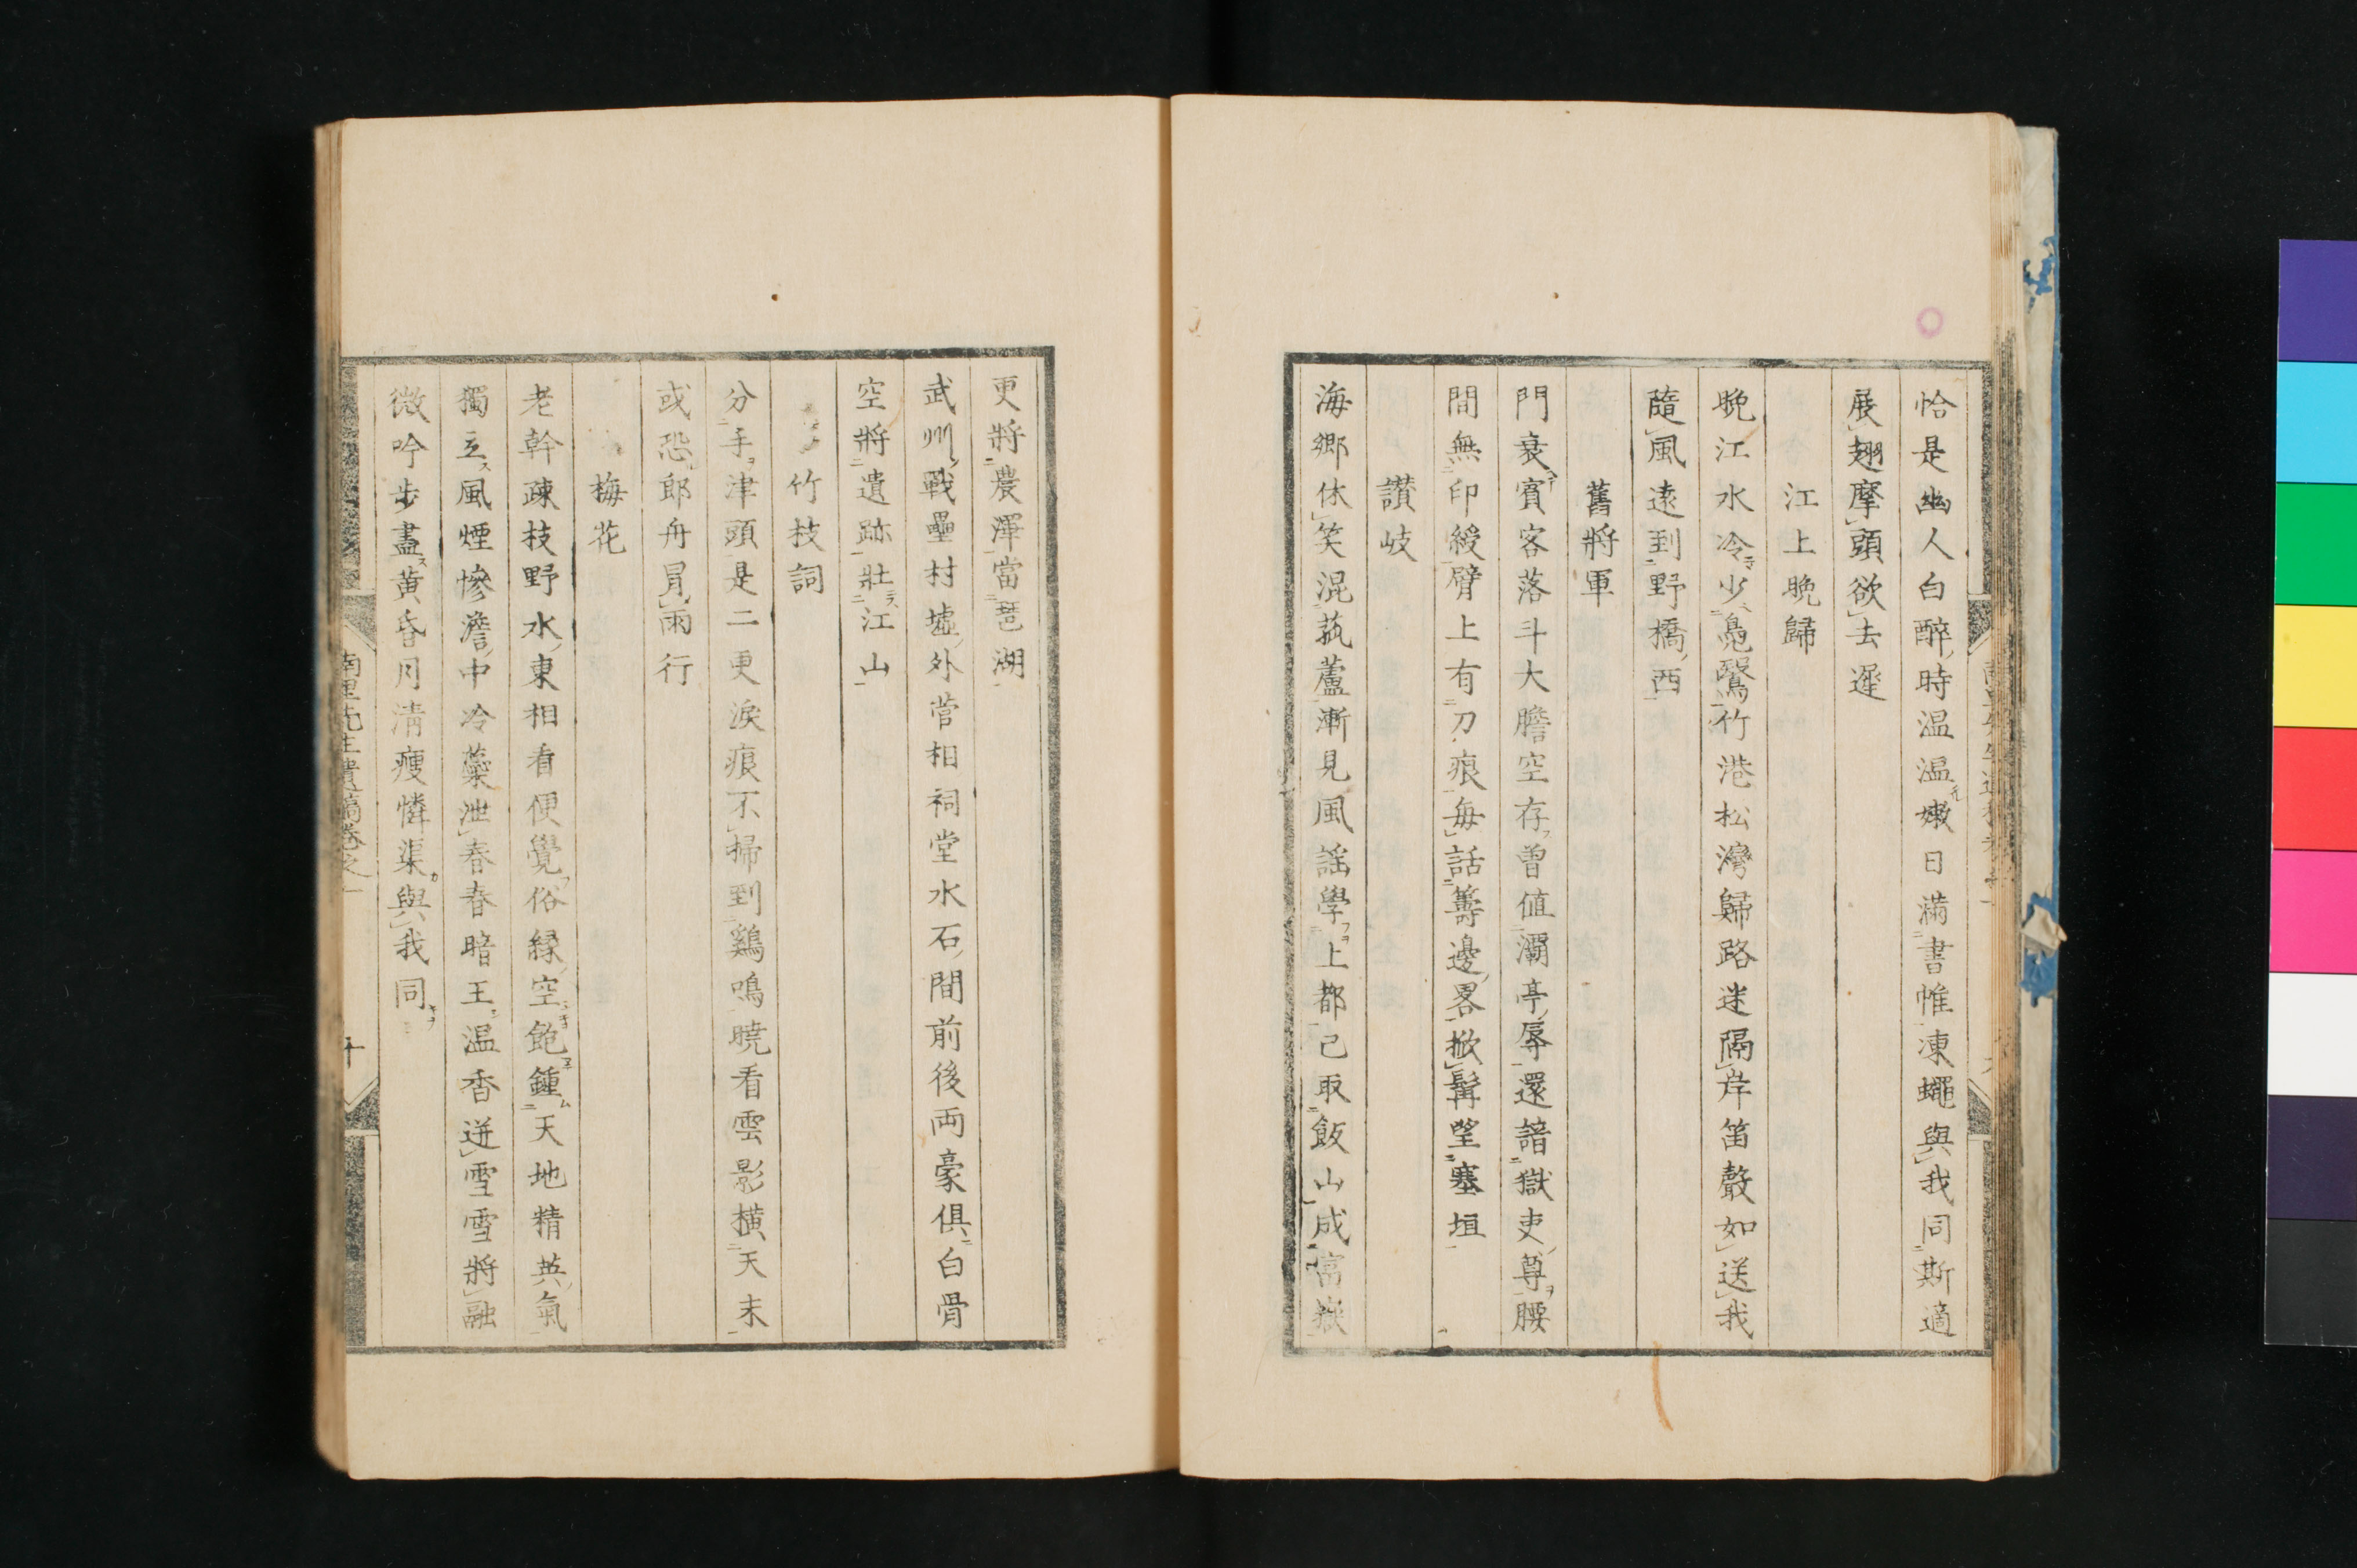 恰是幽人白醉時温温嫩日滿書帷凍蠅與我同斯適
展翅摩頭欲去遲
江上晩歸
晩江水冷少鳧鷖竹港松灣歸路迷隔岸笛聲如送我
隨風遠到野橋西
舊將軍
門衰賓客落斗大膽空存曽値灞亭辱還諳獄吏尊腰
間無印綬臂上有刀痕毎話籌邊畧掀髯望塞垣
讃岐
海郷休笑混菰蘆漸見風謡學上都已取飯山成富嶽
更將農澤當琶湖
武州戰壘村墟外菅相祠堂水石間前後両豪俱白骨
空將遺跡壯江山
竹枝詞
分手津頭是二更涙痕不掃到鷄鳴曉看雲影横天末
或恐郎舟冐雨行
梅花
老幹疎枝野水東相看便覺俗縁空飽鍾天地精英氣
獨立風煙慘澹中冷蘂泄春春暗王温香迸雪雪將融
微吟步盡黄昏月清痩憐渠與我同
南里先生遺稿卷之一
十